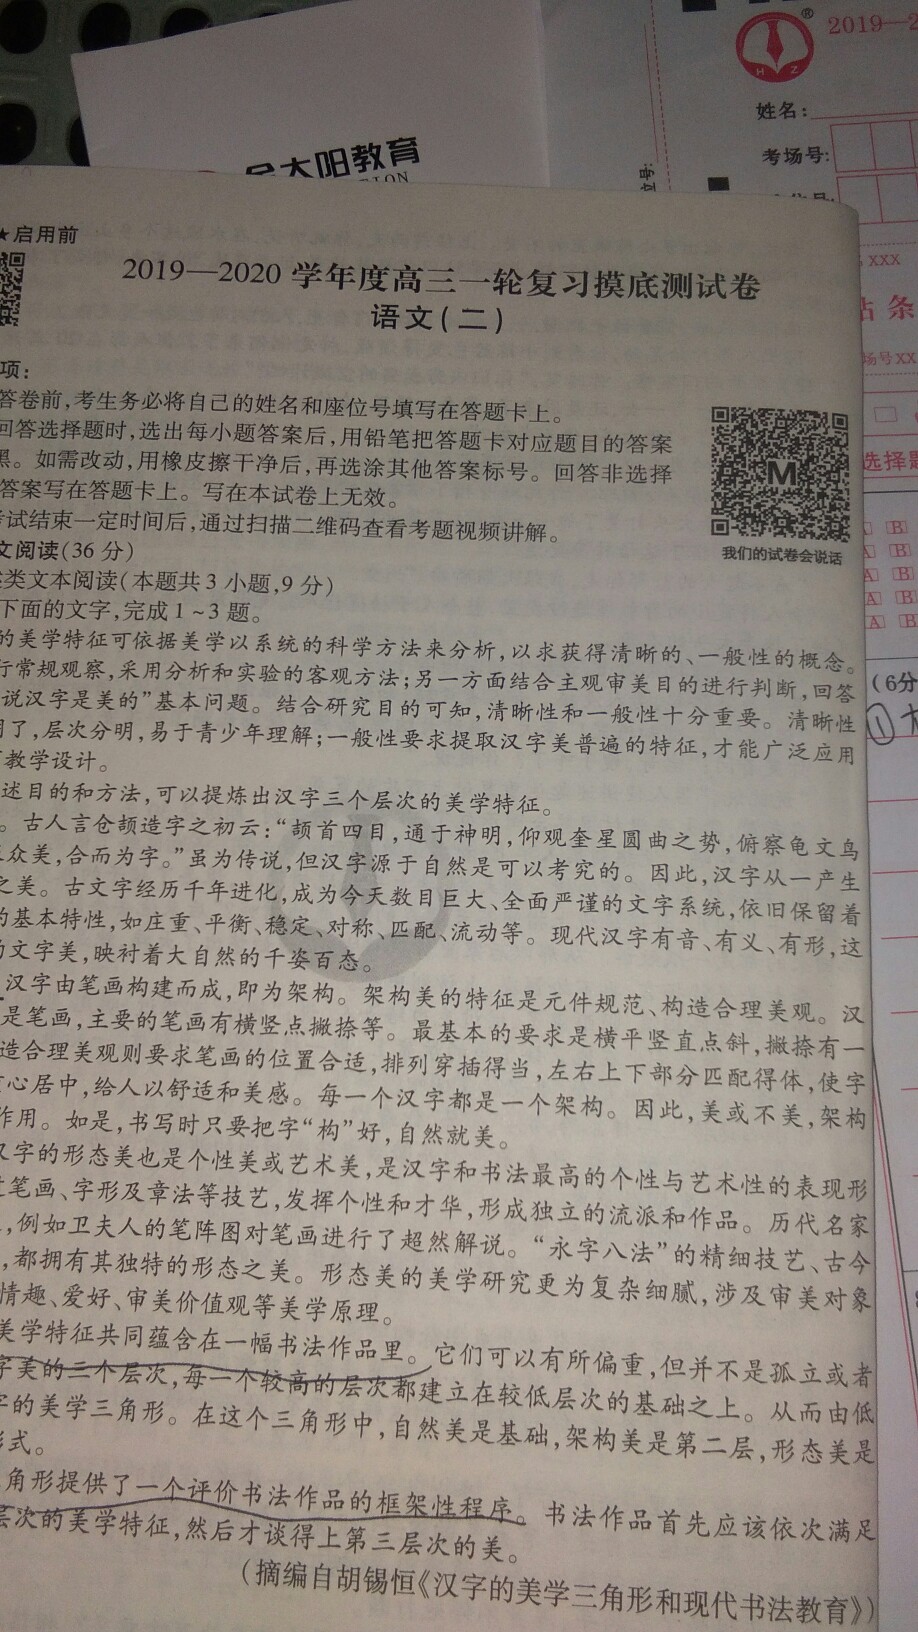 2019—2
姓名:
考场号:
太阳教育
★启用前
2019—2020 学年度高三一轮复习摸底测试卷
语文(二)
项:
答卷前,考生务必将自己的姓名和座位号填写在答题卡上。
回答选择题时,选出每小题答案后,用铅笔把答题卡对应题目的答案
黑。如需改动,用橡皮擦干净后,再选涂其他答案标号。回答非选择
答案写在答题卡上。写在本试卷上无效。
考试结束一定时间后,通过扫描二维码查看考题视频讲解。
M
我们的试卷会说话
文阅读(36 分)
类文本阅读(本题共 3 小题,9 分)
下面的文字,完成 1~3 题。
的美学特征可依据美学以系统的科学方法来分析,以求获得清晰的、一般性的概念。
行常规观察,采用分析和实验的客观方法;另一方面结合主观审美目的进行判断,回答
说汉字是美的”基本问题。结合研究目的可知,清晰性和一般性十分重要。清晰性
明了,层次分明,易于青少年理解;一般性要求提取汉字美普遍的特征,才能广泛应用
教学设计。
述目的和方法,可以提炼出汉字三个层次的美学特征。
。古人言仓颉造字之初云:“颉首四目,通于神明,仰观奎星圆曲之势,俯察龟文鸟
众美,合而为字。”虽为传说,但汉字源于自然是可以考究的。因此,汉字从一产生
之美。古文字经历千年进化,成为今天数目巨大、全面严谨的文字系统,依旧保留着
的基本特性,如庄重、平衡、稳定、对称、匹配、流动等。现代汉字有音、有义、有形,这
文字美,映衬着大自然的千姿百态。
汉字由笔画构建而成,即为架构。架构美的特征是元件规范、构造合理美观。汉
是笔画,主要的笔画有横竖点撇捺等。最基本的要求是横平竖直点斜,撇捺有一
造合理美观则要求笔画的位置合适,排列穿插得当,左右上下部分匹配得体,使字
心居中,给人以舒适和美感。每一个汉字都是一个架构。因此,美或不美,架构
作用。如是,书写时只要把字“构”好,自然就美。
汉字的形态美也是个性美或艺术美,是汉字和书法最高的个性与艺术性的表现形
笔画、字形及章法等技艺,发挥个性和才华,形成独立的流派和作品。历代名家
,例如卫夫人的笔阵图对笔画进行了超然解说。“永字八法”的精细技艺、古今
,都拥有其独特的形态之美。形态美的美学研究更为复杂细腻,涉及审美对象
情趣、爱好、审美价值观等美学原理。
美学特征共同蕴含在一幅书法作品里。它们可以有所偏重,但并不是孤立或者
字美的三个层次,每一个较高的层次都建立在较低层次的基础之上。从而由低
字的美学三角形。在这个三角形中,自然美是基础,架构美是第二层,形态美是
形式。
角形提供了一个评价书法作品的框架性程序。书法作品首先应该依次满足
层次的美学特征,然后才谈得上第三层次的美。
(摘编自胡锡恒《汉字的美学三角形和现代书法教育》)
XXX
条
场号XX
选择题
B
B
A B
A B
A B
(6分
①